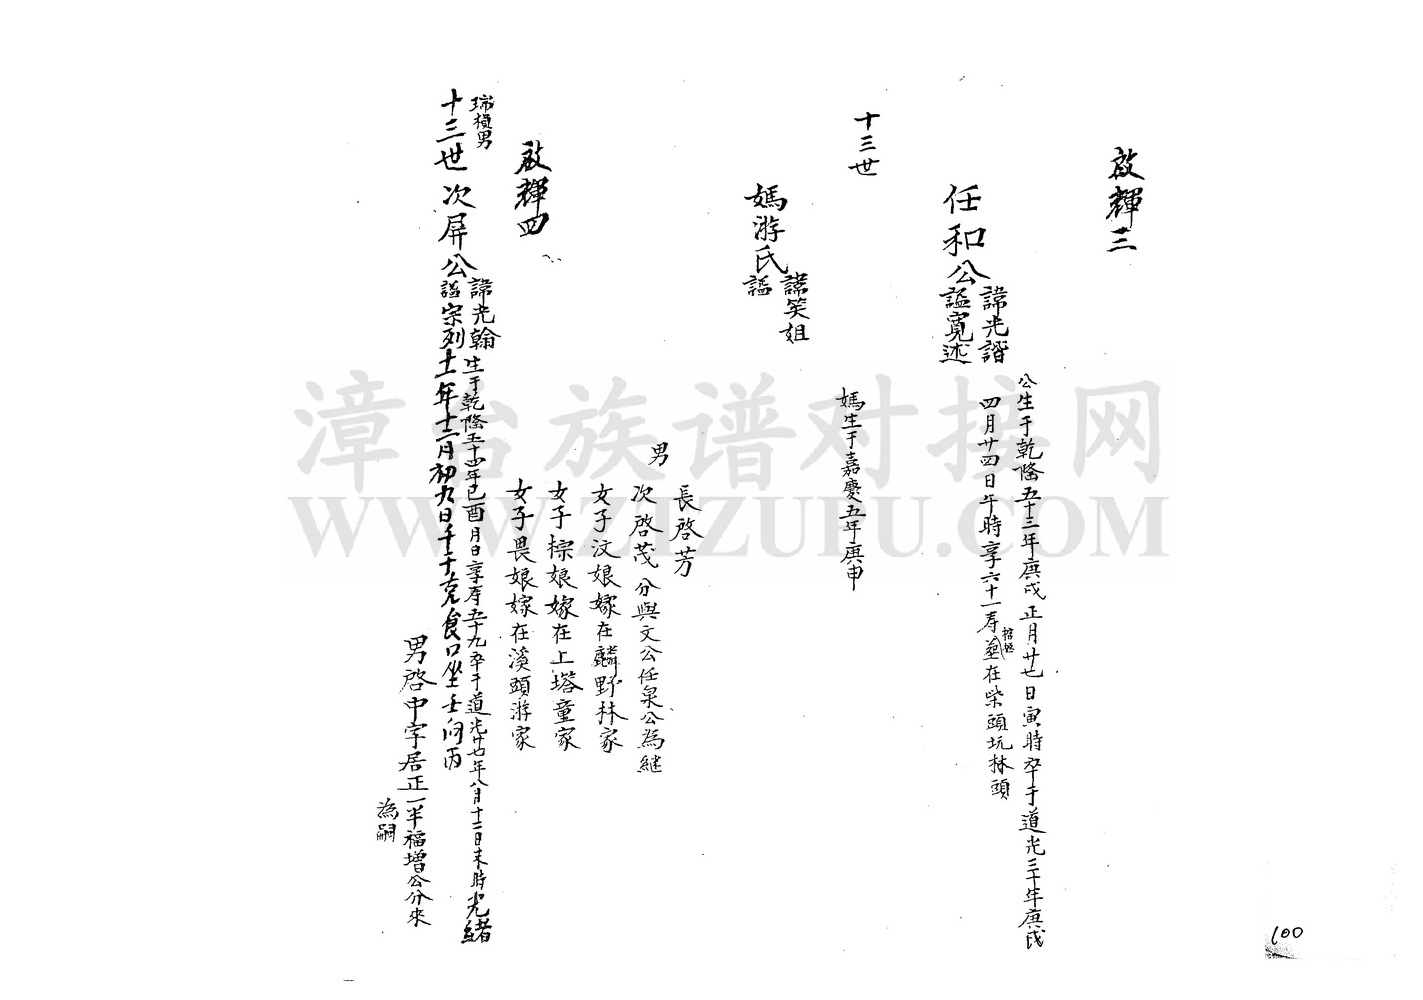 啟輝三
任和公
諱光諧
諡寬述
公生于乾隆五十二年庚戌正月廿七日寅時卒于道光三十年庚戌
四月廿四日午時享六十一寿葬在柴頭坑林頭
十三世
媽游氏
諱笑姐
諡
媽生于嘉慶五年庚申
男
長啓芳
次啓茂分與文公任泉公為継
女子汶娘嫁在麟野林家
女子棕娘嫁在上塔童家
女子畏娘嫁在溪頭游家
啟輝四
瑞楨男
十三世次屏公
諱光翰
諡宗列
生于乾隆五十四年已酉月日享寿五十九卒于道光廿七年八月十二日未時光緒
十一年十二月初九日午食口坐壬向丙
男啓中字居正一半福增公分來
為嗣
100
漳台族谱对接网
WWW.ZIZUPU.COM